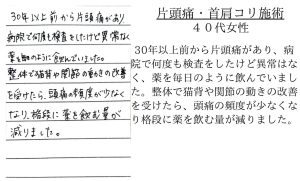 30年以上前から片頭痛があり
病院で何度も検査をしたけど異常なく
薬を毎日のように飲んでいました。
整体で猫背や関節の動きの改善
を受けたら、頭痛の頻度が少なく
なり格段に薬を飲む量が
減りました。
片頭痛・首肩コリ施術
４０代女性
30年以上前から片頭痛があり、病
院で何度も検査をしたけど異常はな
く、薬を毎日のように飲んでいまし
た。整体で猫背や関節の動きの改善
を受けたら、頭痛の頻度が少なくな
り格段に薬を飲む量が減りました。